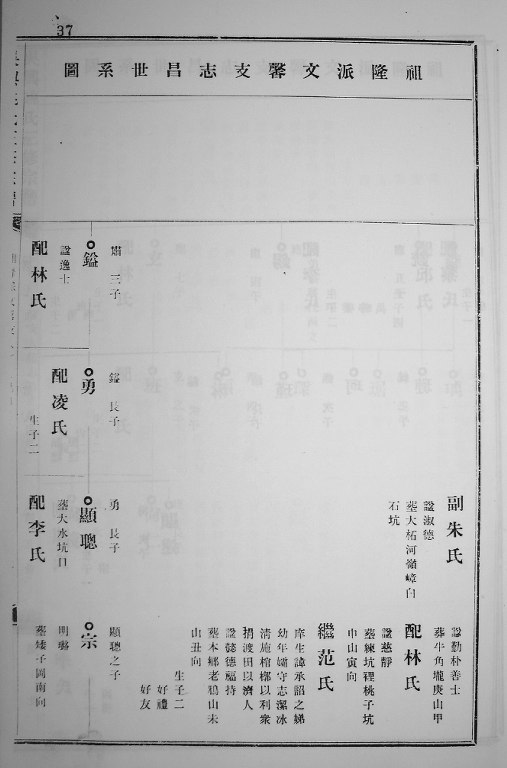 37
祖隆派文馨支志昌世系圖
副朱氏
諡淑德
墓大柘河嶺嶂白
石坑
諡勤朴善士
葬牛角壠庚山甲
配林氏
諡慈靜
墓練坑裡桃子坑
申山寅向
繼范氏
庠生諱承詔之娣
幼年孀守志潔冰
清施棺槨以利衆
捐渡田以濟人
諡懿德福持
墓本鄉老鴉山未
山丑向
生子二
好禮
好友
三子
鎰
諡逸士
配林氏
鎰 長子
勇
配凌氏
生子二
勇 長子
顯聰
墓大水坑口
配李氏
顯聰之子
宗
明
墓矮子岡南向